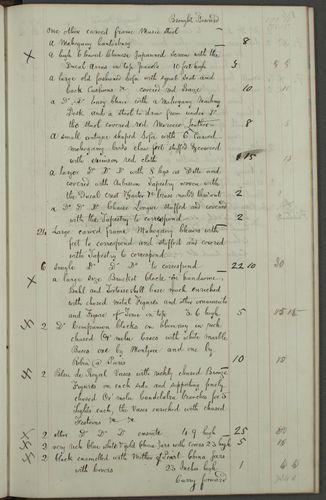 Brought Forward
One other carved frame Music stool
a Mahogany Canterbury 8
a high 6 leaved Chinese Japanned Screen with the
Ducal Arms in top panels 10 feet high 5
a large old fashioned Sofa with squat seat and
back Cushions & covered red Baize 10
a Do. easy Chair with a Mahogany Reading
Desk and a stool to draw from under Do
the stool covered red Morocco leather 8
a small antique shaped Sofa with 6 Carved
Mahogany birds claw feet stuffed &covered
with crimson red cloth 15
a larger Do Do Do with 8 legs as Ditto and
covered with Aubusson Tapestry woven with
the Ducal Crest 2
a Do Do Do Chaise Longue stuffed and covered
with the Tapestry to correspond 2
24 Large carved frame Mahogany Chairs with
feet to correspond and stuffed and covered
with Tapestry to correspond
6 single Do Do Do to correspond 22 10 30
a large size Bracket Clock in handsome
Buhl and Tortoiseshell case much enriched
with chased metal Figures and other ornaments
and Figure of Time on top 3.6 high 5
2 Do Companion Clocks in
chased Or molu cases with white Marble
Bases one by Montjoie and one by
Robin a Paris 10 15
2 Bleu de Royal Vases with richly chased Bronze
Figures on each side and supporting finely
chased Or molu Candelabra branches for 5
Lights each, the Vases enriched with chased
Festoons &c &c
2 other Do Do Do ensuite 4.9 high 25
2 very rich blue white & gilt China Jars with covers 23 high 5
2 black enamelled with Mother of Pearl China Jars
with covers 23 Inches high 1
Carry forward